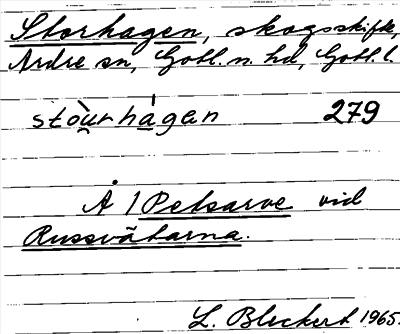 Storhagen, skogsskifte,
Ardre sn, Gotl. n. hd, Gotl. l.
stòu̯rhá̱gen 279
Å 1 Petsarve vid
Russvätarna.
L. Bleckert 1965.